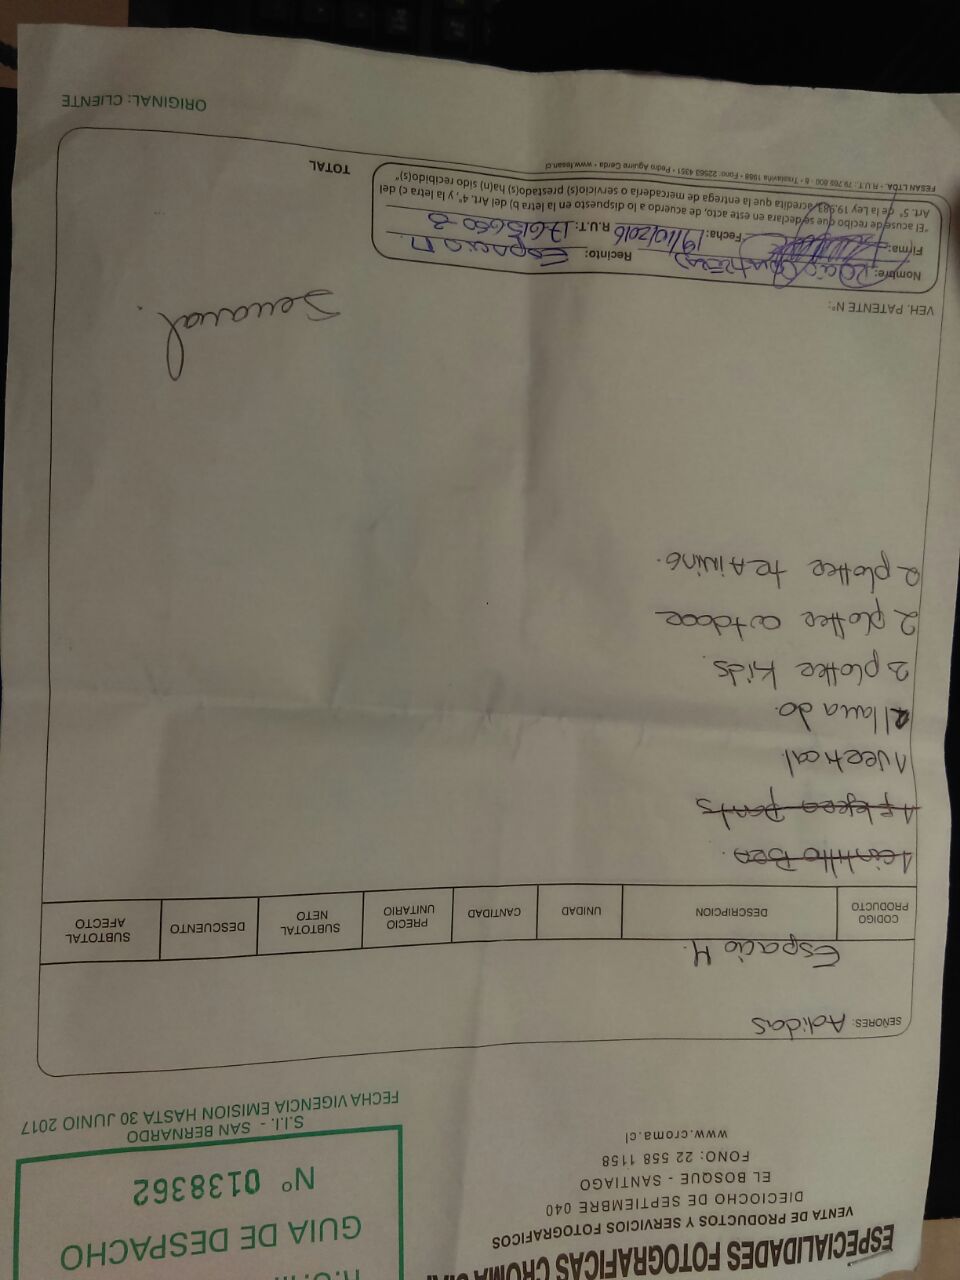 ESPECIALIDADES FOTOGRAFICAS CROMA
VENTA DE PRODUCTOS Y SERVICIOS FOTOGRAFICOS
DIECIOCHO DE SEPTIEMBRE 040
EL BOSQUE - SANTIAGO
FONO: 22 558 1158
www.croma.cl
GUIA DE DESPACHO
Nº 0138362
S.I.I. - SAN BERNARDO
FECHA VIGENCIA EMISION HASTA 30 JUNIO 2017
SEÑORES: Adidas
Espacio M.
CODIGO PRODUCTO DESCRIPCION UNIDAD CANTIDAD PRECIO UNITARIO SUBTOTAL NETO DESCUENTO SUBTOTAL AFECTO
1 cintillo
1 pants
1 vertical.
llamado.
3 plotter kids.
2 plotter outdoor
2 plotter training.
Semanal.
VEH. PATENTE Nº:
Nombre: Recinto: Espacio M.
Firma: Fecha: 19/10/2016 R.U.T: 17615660-3
"El acuse de recibo que se declara en este acto, de acuerdo a lo dispuesto en la letra b) del Art. 4°, y la letra c) del
Art. 5° de la Ley 19.983, acredita que la entrega de mercadería o servicio(s) prestado(s) ha(n) sido recibido(s)"
FESAN LTDA. • R.U.T.: 79.769.600 - 8 • Traslaviña 1988 • Fono: 22563 4351 • Pedro Aguirre Cerda • www.fesan.cl
TOTAL
ORIGINAL: CLIENTE